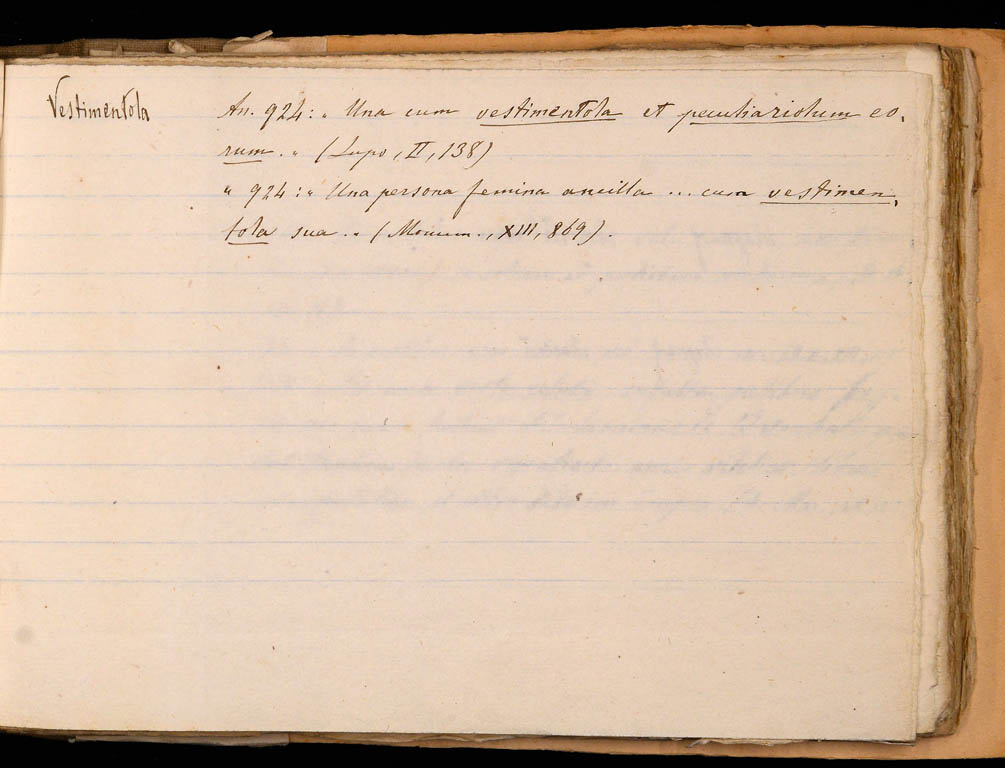 Vestimentola
An. 924: „ Una cum vestimentola et peculiariolum eo-
rum. „ (Lupo, II, 138)
„ 924: „ Una persona femina ancilla ... cum vestimen-
tola sua. „ (Monum., XIII, 869).